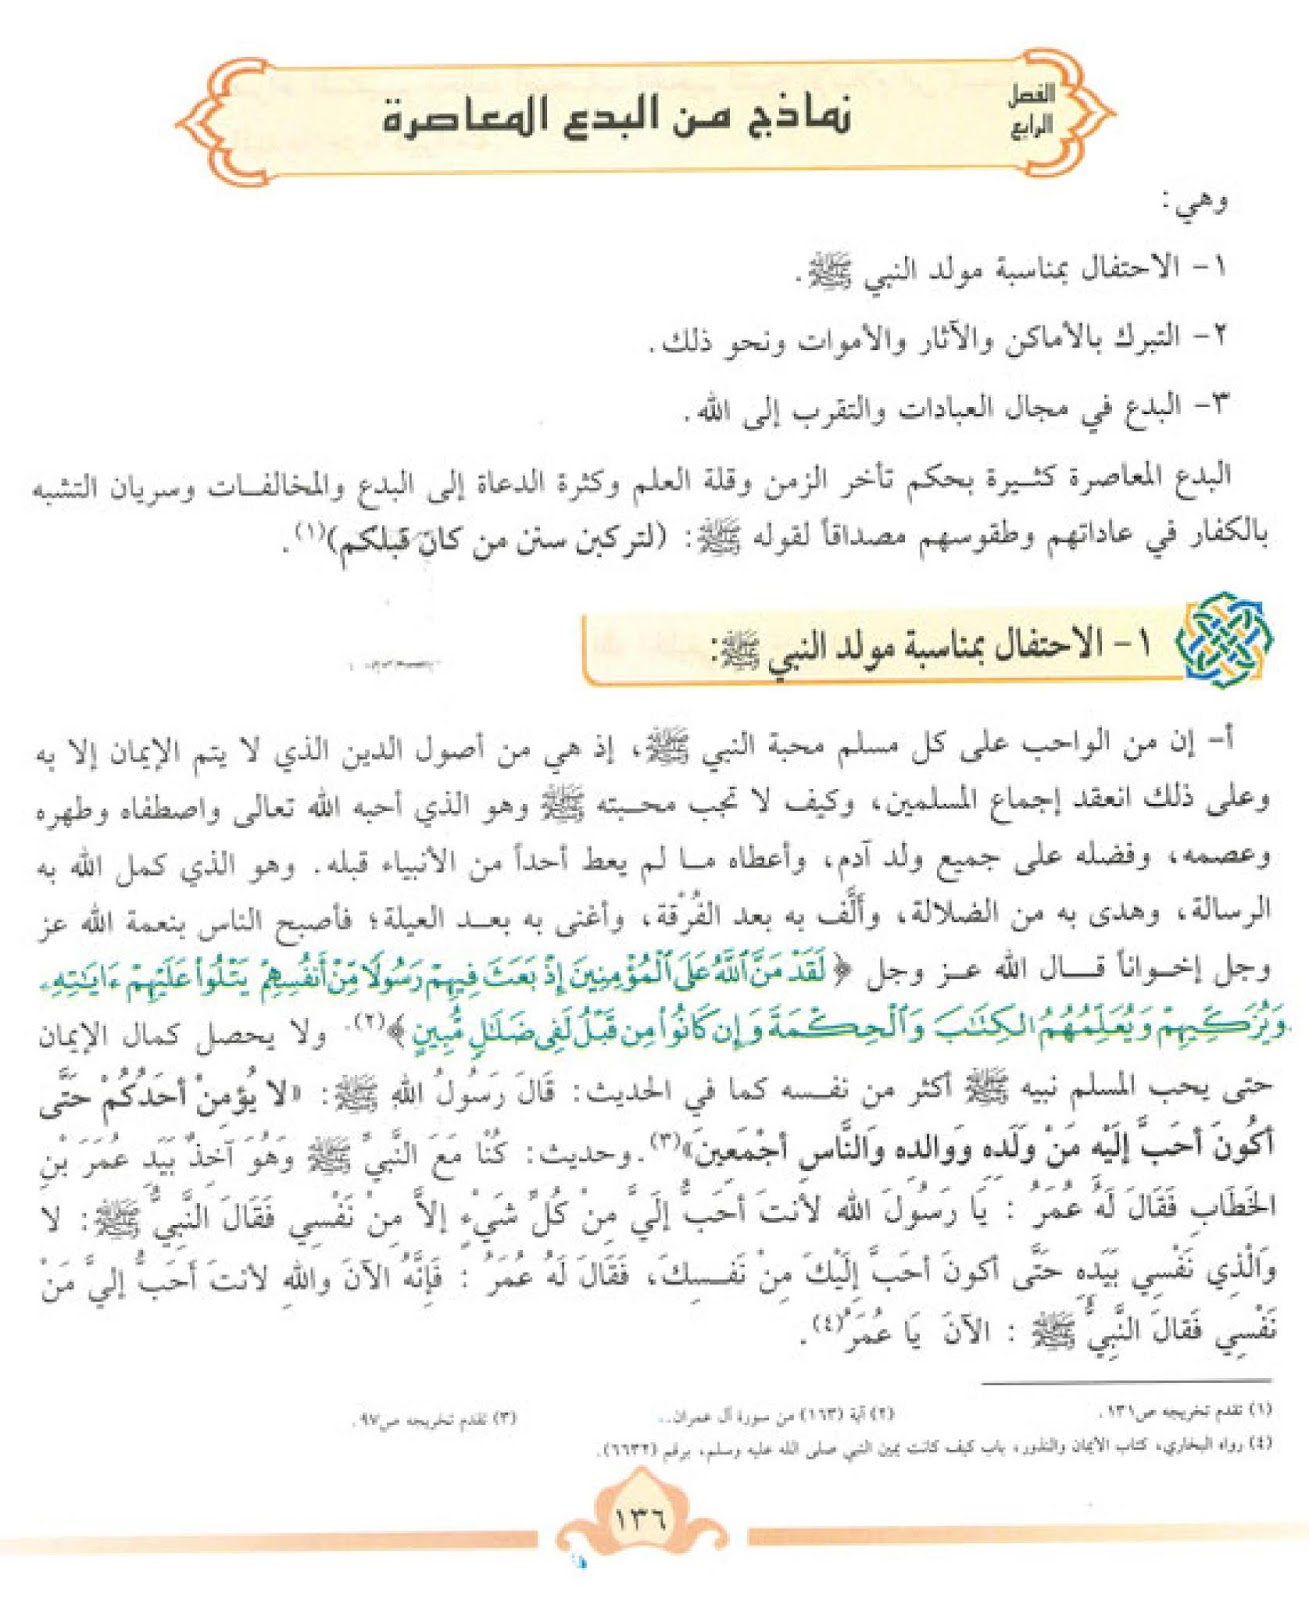 الفصل الرابع
نماذج من البدع المعاصرة
وهي:
١- الاحتفال بمناسبة مولد النبي ﷺ.
٢- التبرك بالأماكن والآثار والأموات ونحو ذلك.
٣- البدع في مجال العبادات والتقرب إلى الله.
البدع المعاصرة كثيرة بحكم تأخر الزمن وقلة العلم وكثرة الدعاة إلى البدع والمخالفات وسريان التشبه
بالكفار في عاداتهم وطقوسهم مصداقاً لقوله ﷺ: (لتركبن سنن من كان قبلكم)(١).
١- الاحتفال بمناسبة مولد النبي ﷺ:
أ- إن من الواجب على كل مسلم محبة النبي ﷺ، إذ هي من أصول الدين الذي لا يتم الإيمان إلا به
وعلى ذلك انعقد إجماع المسلمين، وكيف لا تجب محبته ﷺ وهو الذي أحبه الله تعالى واصطفاه وطهره
وعصمه، وفضله على جميع ولد آدم، وأعطاه ما لم يعط أحداً من الأنبياء قبله. وهو الذي كمل الله به
الرسالة، وهدى به من الضلالة، وألَّف به بعد الفُرْقة، وأغنى به بعد العيلة؛ فأصبح الناس بنعمة الله عز
وجل إخواناً قال الله عز وجل ﴿ لَقَدْ مَنَّ ٱللَّهُ عَلَى ٱلْمُؤْمِنِينَ إِذْ بَعَثَ فِيهِمْ رَسُولًا مِّنْ أَنفُسِهِمْ يَتْلُوا۟ عَلَيْهِمْ ءَايَـٰتِهِۦ
وَيُزَكِّيهِمْ وَيُعَلِّمُهُمُ ٱلْكِتَـٰبَ وَٱلْحِكْمَةَ وَإِن كَانُوا۟ مِن قَبْلُ لَفِى ضَلَـٰلٍ مُّبِينٍ ﴾(٢). ولا يحصل كمال الإيمان
حتى يحب المسلم نبيه ﷺ أكثر من نفسه كما في الحديث: قَالَ رَسُولُ اللهِ ﷺ: «لا يُؤمِنْ أحَدُكُمْ حَتَّى
أكُونَ أحَبَّ إلَيْه مَنْ وَلَدِهِ وَوالده والنَّاسِ أجْمَعِينَ»(٣).وحديث: كُنَّا مَعَ النَّبِيِّ ﷺ وَهُوَ آخِذٌ بَيَدِ عُمَرَ بْنِ
الخَطَابِ فَقَالَ لَهُ عُمَرُ : يَا رَسُولَ الله لأنتَ أحَبُّ إلَيَّ مِنْ كُلِّ شَيْءٍ إلاَّ مِنْ نَفْسِي فَقَالَ النَّبِيُّ ﷺ: لا
وَالَّذِي نَفْسِي بَيَدِهِ حَتَّى أكونَ أحَبَّ إلَيْكَ مِنْ نَفسِكَ، فَقَالَ لَهُ عُمَرُ : فَإنَّهُ الآنَ واللهِ لأنتَ أحَبُّ إليَّ مَنْ
نَفْسِي فَقالَ النَّبِيُّ ﷺ : الآنَ يَا عُمَرُ(٤).
(١) تقدم تخريجه ص١٣١. (٢) آية (١٦٣) من سورة آل عمران. (٣) تقدم تخريجه ص٩٧.
(٤) رواه البخاري، كتاب الأيمان والنذور، باب كيف كانت يمين النبي صلى الله عليه وسلم، برقم (٦٦٣٢).
١٣٦